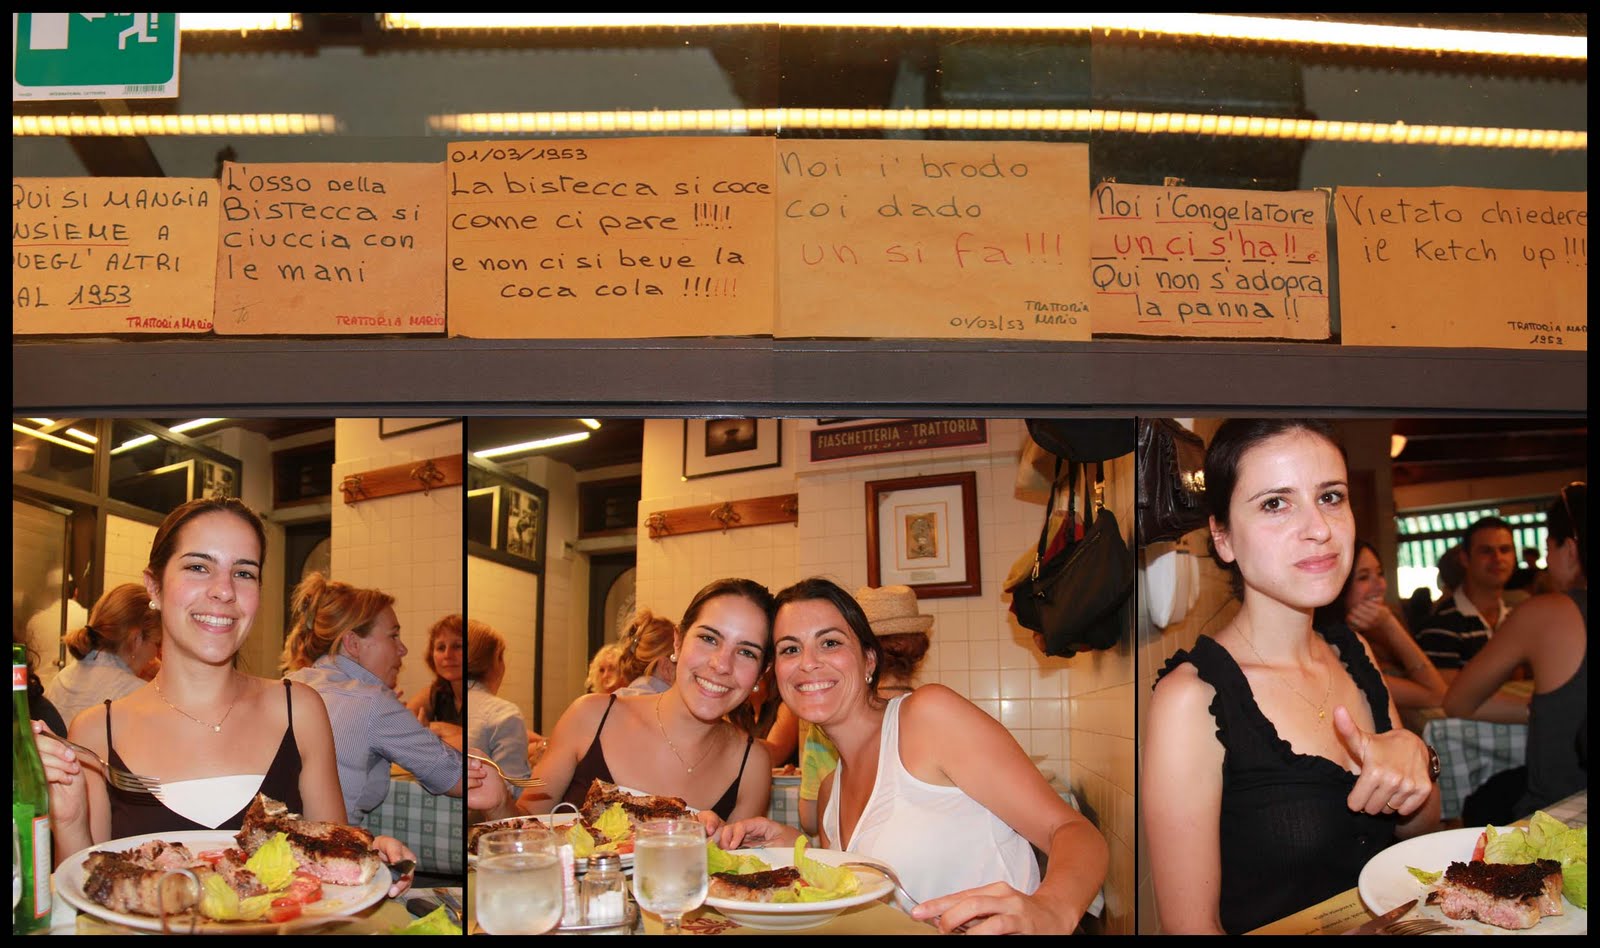 INTERNATIONAL
QUI SI MANGIA
INSIEME A
QUEGL' ALTRI
DAL 1953
TRATTORIA MARIO
L'OSSO DELLA
BISTECCA SI
CIUCCIA CON
le mani
TRATTORIA MARIO
01/03/1953
La bistecca si coce
come ci pare !!!!!
e non ci si beve la
coca cola !!!!!!
Noi i' brodo
coi dado
un si fa!!!
TRATTORIA
MARIO
01/03/53
Noi i'Congelatore
un ci s'ha!! e
Qui non s'adopra
la panna!!
Vietato chiedere
il Ketch up!!!
TRATTORIA MAR
1953
FIASCHETTERIA - TRATTORIA
mario